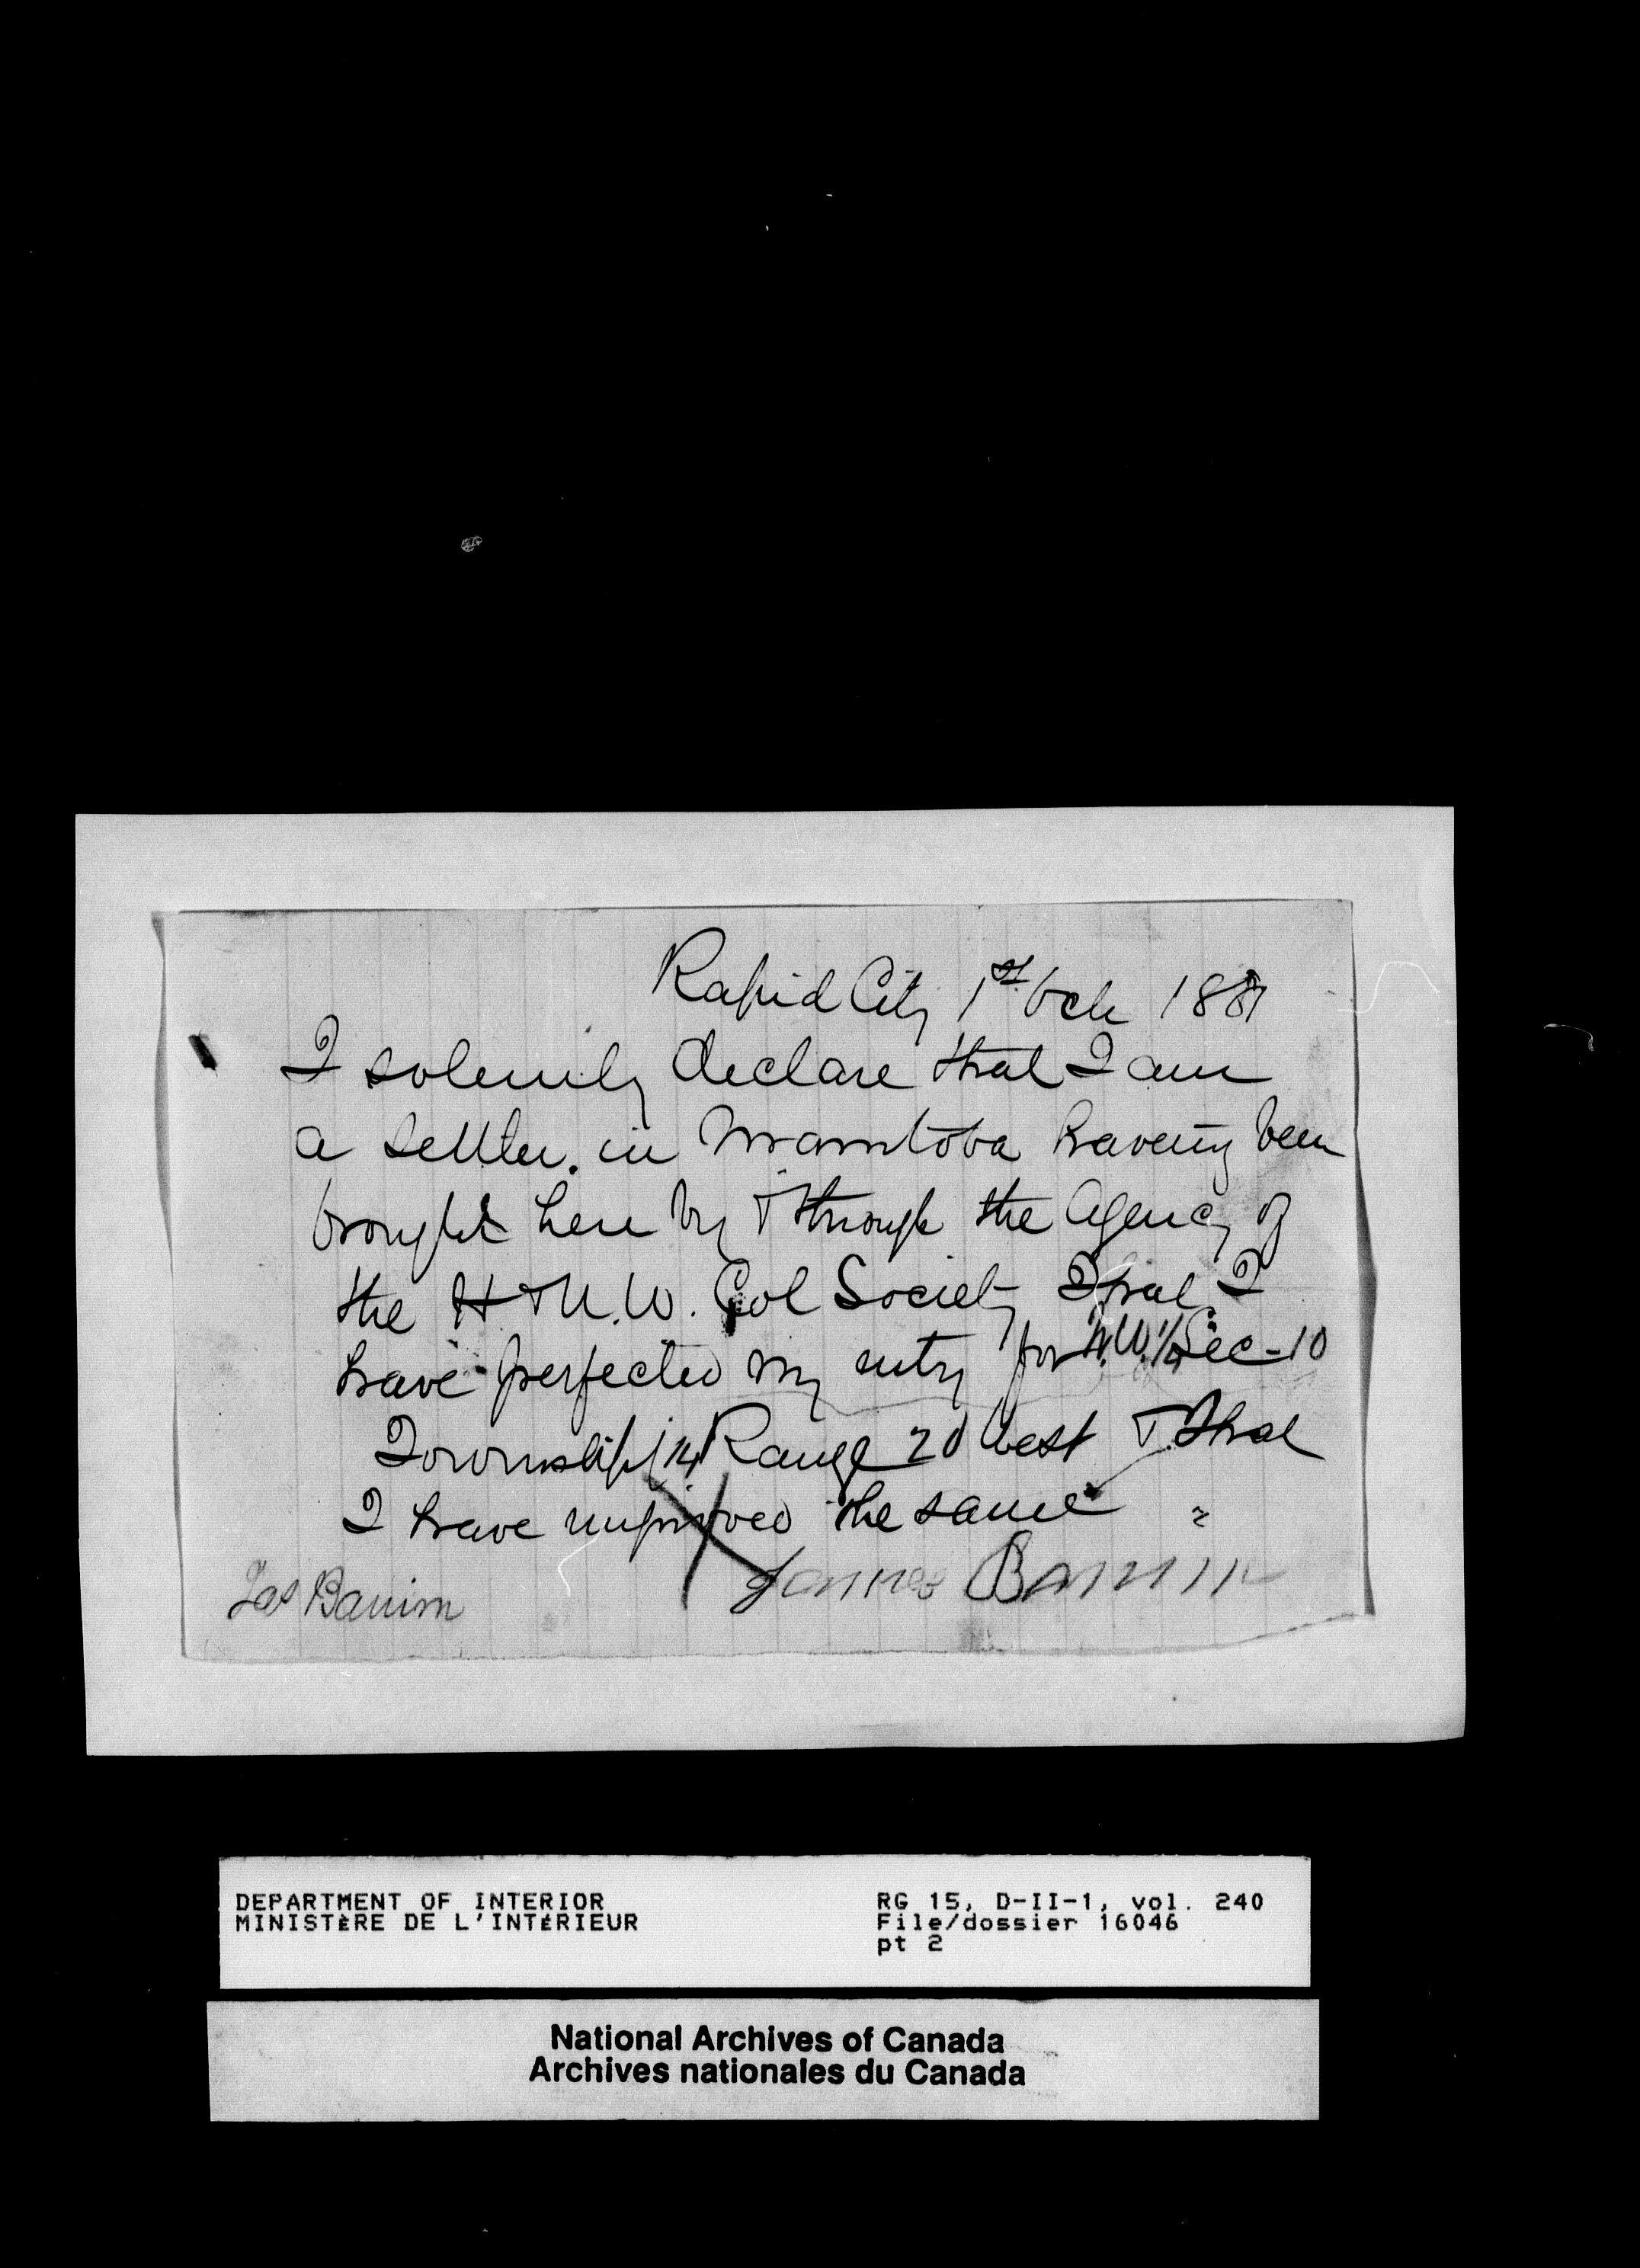 Rapid City 1st Octr 1881
I solemnly declare that I am
a settler in Manitoba having been
brought here by & through the Agency of
the H & N.W. Col Society & that I
have perfected my entry for N.W. 1/4 Sec - 10
Township 14 Range 20 West & that
I have improved the same
James Bannin
Jas Banim
DEPARTMENT OF INTERIOR
MINISTÈRE DE L'INTÉRIEUR
RG 15, D-II-1, vol. 240
File/dossier 16046
pt 2
National Archives of Canada
Archives nationales du Canada